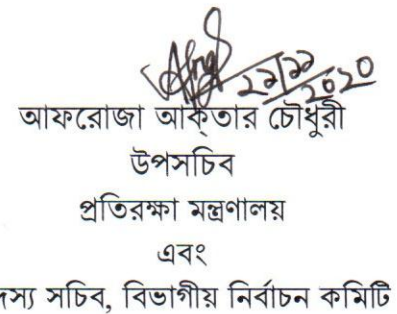 ২২/১১
২০২০
আফরোজা আক্তার চৌধুরী
উপসচিব
প্রতিরক্ষা মন্ত্রণালয়
এবং
সচিব, বিভাগীয় নির্বাচন কমিটি